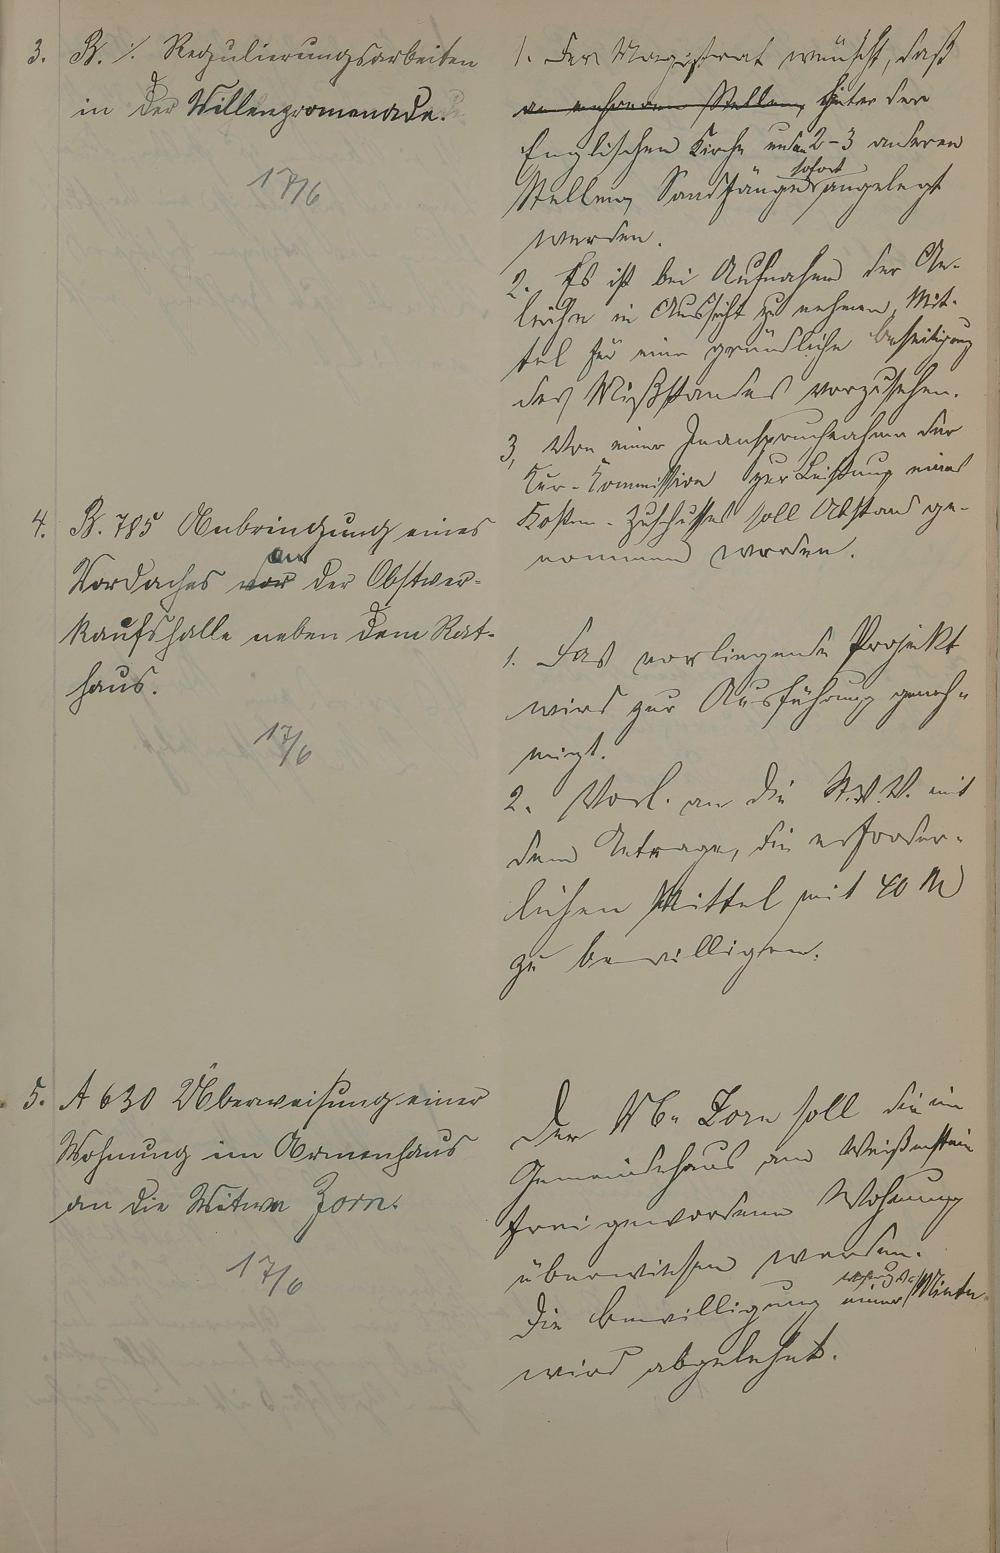 3. B. ·/. Regulierungsarbeiten
in der Willenpromenade.
17/6
1. Der Magistrat wünscht, daß
an mehreren Stellen, hinter der
Englischen Kirche und an 2-3 anderen
sofort
Stellen, Sandfänge angelegt
werden.
2. Es ist bei Aufnahme der An-
leihe in Aussicht zu nehmen, Mit-
tel für eine gründliche Beseitigung
des Mißstandes vorzusehen.
3, Von einer Inanspruchnahme der
Kur-Kommission zur Leistung eines
Kosten-Zuschusses soll Abstand ge-
nommen werden.
4. B. 785 Anbringung eines
an
Vordaches vor der Obstver-
kaufshalle neben dem Rat-
haus.
17/6
1. Das vorliegende Projekt
wird zur Ausführung geneh-
migt.
2. Vorl. an die St.V.V. mit
dem Antrage, die erforder-
lichen Mittel mit 40 M
zu bewilligen.
5. A 630 Überweisung einer
Wohnung im Armenhaus
an die Witwe Zorn.
17/6
Der Wb. Zorn soll die im
Gemeindehaus am Weißenstein
frei gewordene Wohnung
überwiesen werden.
Die Bewilligung einer Miete
wird abgelehnt.